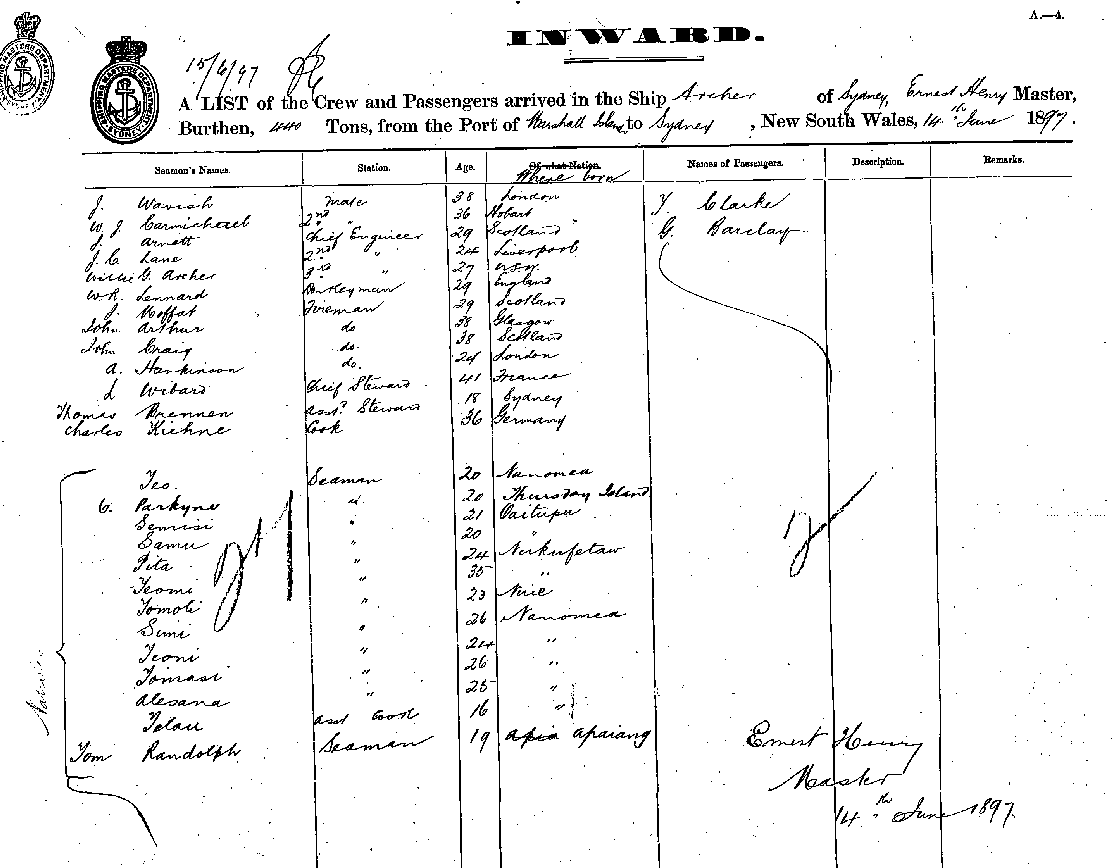 A.—4.
INWARD.
15/6/97
A LIST of the Crew and Passengers arrived in the Ship Archer of Sydney, Ernest Henry Master,
Burthen, 440 Tons, from the Port of Marshall Islands to Sydney, New South Wales, 14th June 1897.
Seamen's Names. Station. Age. Of what Nation. Where born Names of Passengers. Description. Remarks.
J. Wavish Mate 38 London T. Clarke
W. J. Carmichael 2nd " 36 Hobart G. Barclay
J. Arnett Chief Engineer 29 Scotland
J. C. Lane 2nd " 24 Liverpool
Willie G. Archer 3rd " 27 N.S.W.
W. R. Lennard Donkeyman 29 England
J. Moffat Fireman 29 Scotland
John Arthur do 38 Glasgow
John Craig do. 38 Scotland
A. Hankinson do. 24 London
L Wibard Chief Steward 41 France
Thomas Brennen Asst. Steward 18 Sydney
Charles Kiehne Cook 36 Germany
Teo. Seaman 20 Nanomea
C. Parkyne " 20 Thursday Island
Semisi " 21 Vaitupu
Samu " 20 "
Pita " 24 Nukufetaw
Teomi " 35 "
Tomoti " 23 Niue
Simi " 26 Nanomea
Teoni " 24 "
Tomasi " 26 "
Alesana " 25 "
Telau Asst Cook 16 "
Tom Randolph Seaman 19 Apia Apaiang
Ernest Henry
Master
14th June 1897.